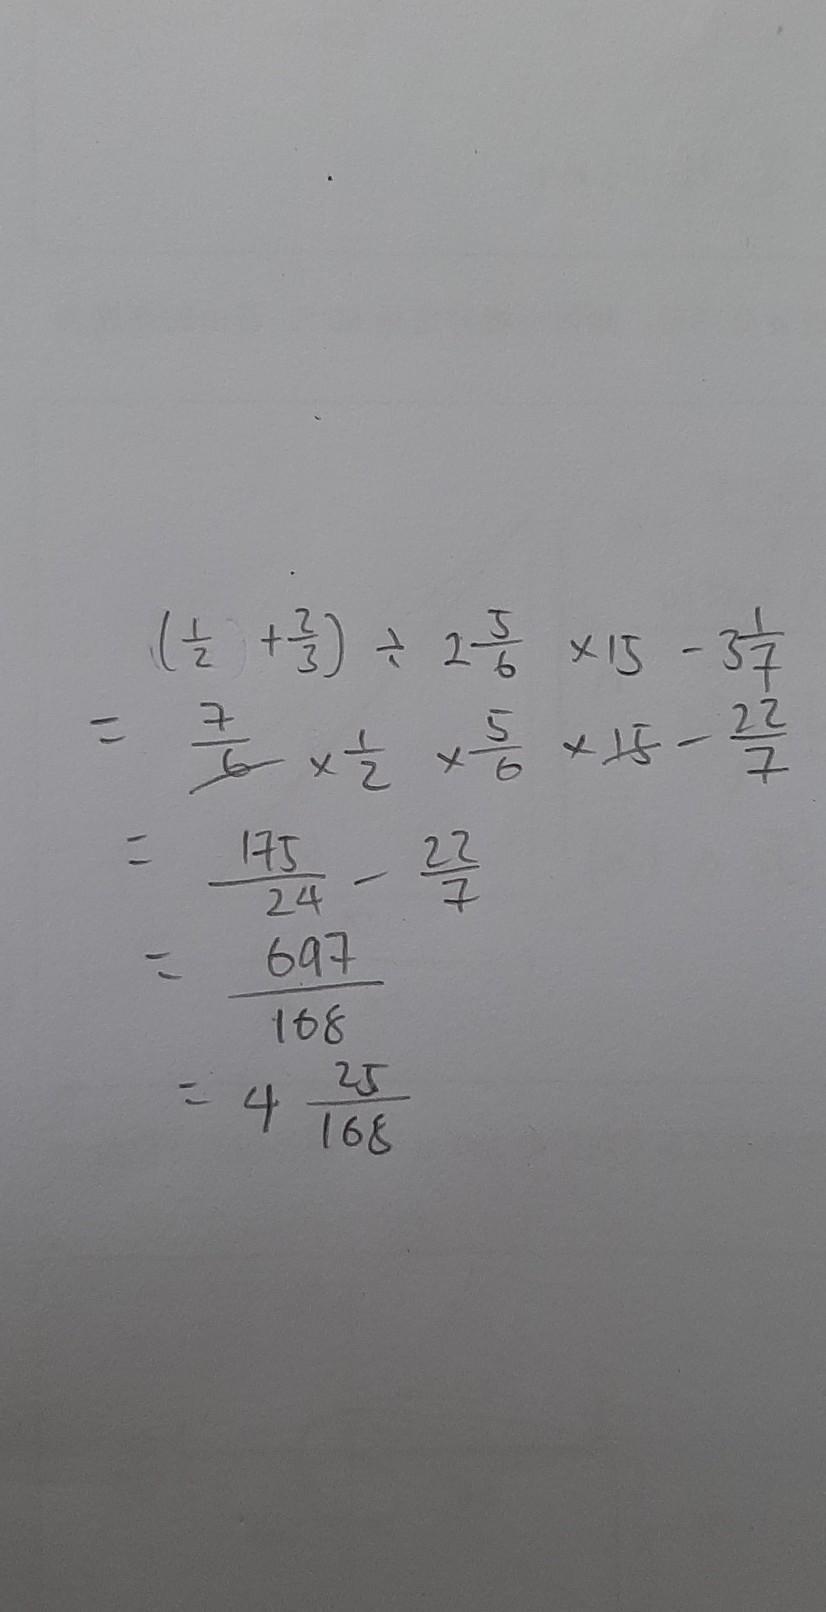 (1/2 + 2/3) ÷ 2 5/6 × 15 - 3 1/7
= 7/6 × 1/2 × 5/6 × 15 - 22/7
= 175/24 - 22/7
= 697/168
= 4 25/168